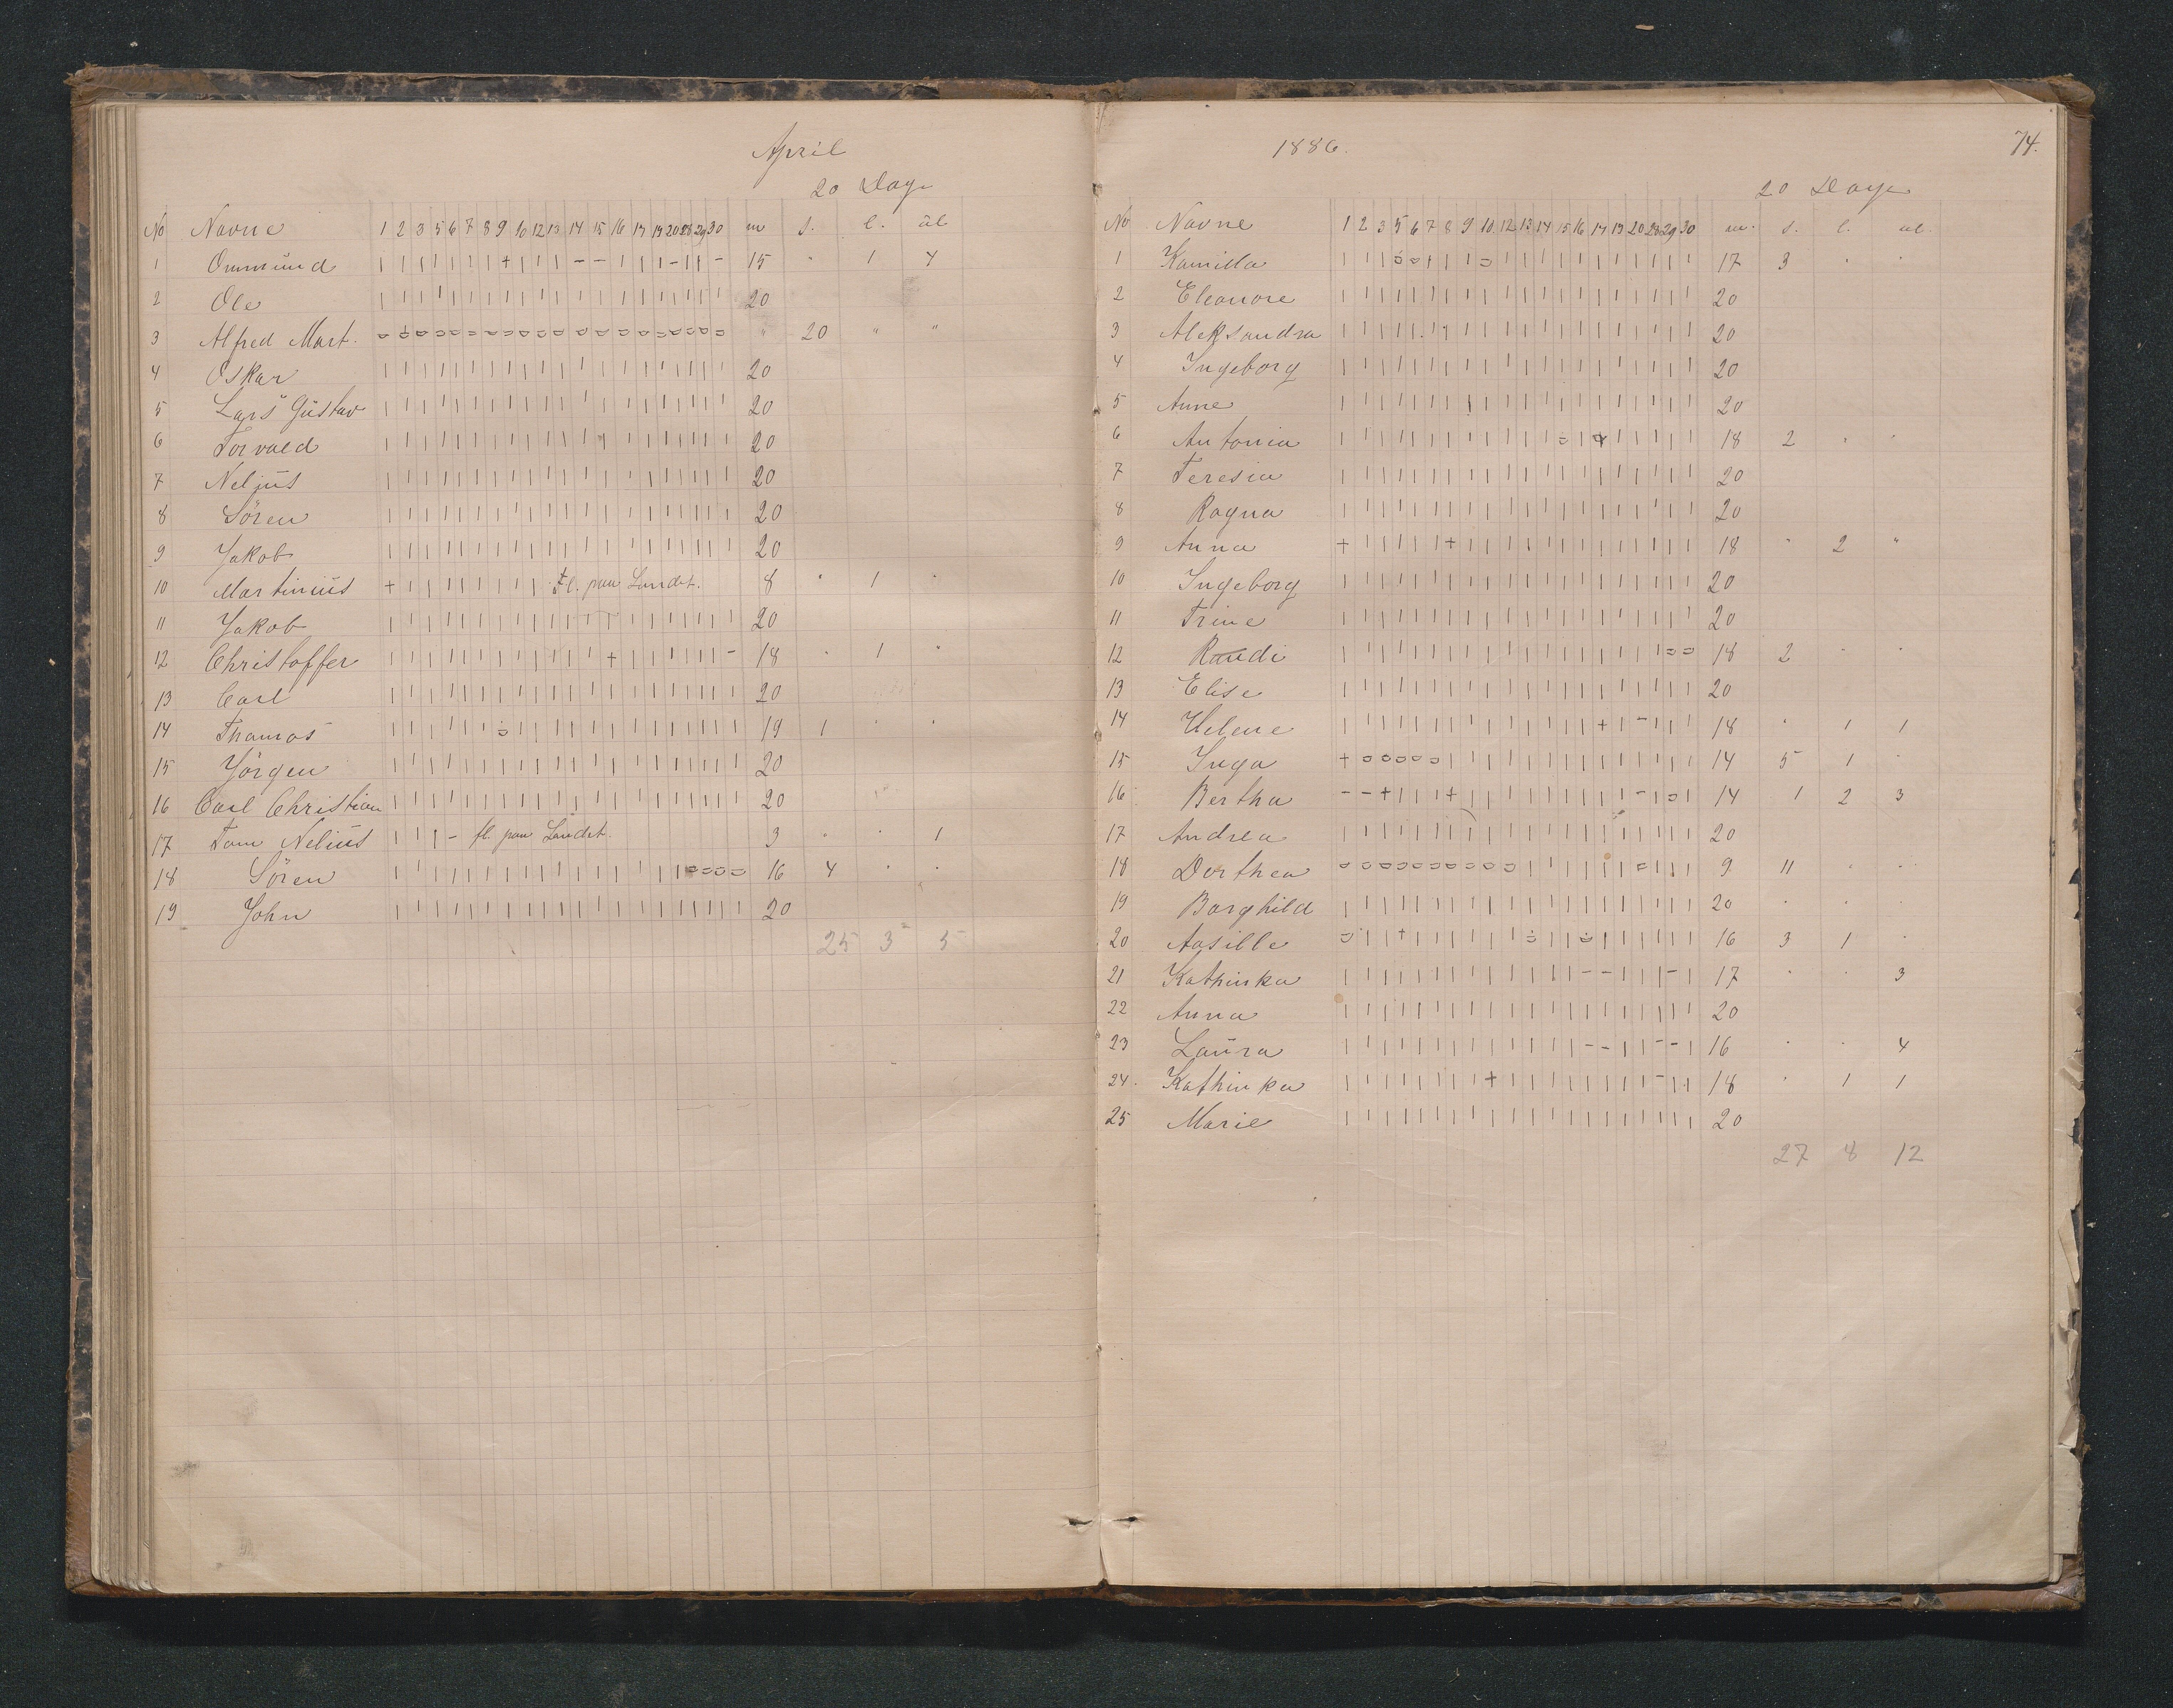 April
20 Dage
No Navne 1 2 3 5 6 7 8 9 10 12 13 14 15 16 17 19 20 28 29 30 m s. l. ul
1 Ommund | | | | | | | + | | | - - | | | - | | - 15 " 1 4
2 Ole 20
3 Alfred Mart. " 20 " "
4 Oskar 20
5 Lars Gustav 20
6 Torvald 20
7 Neljus 20
8 Sören 20
9 Jakob 20
10 Martinius + | | | | | | | | fl. paa Landet. 8 " 1 "
11 Jakob 20
12 Christoffer 18 " 1 "
13 Carl 20
14 Thomas 19 1 " "
15 Jörgen 20
16 Carl Christian 20
17 Tom Nelius | | | - fl. paa Landet. 3 " " 1
18 Sören 16 4 " "
19 John 20
25 3 5
1886. 74.
20 Dage
No Navne 1 2 3 5 6 7 8 9 10 12 13 14 15 16 17 19 20 28 29 30 m. s. l. ul.
1 Kamilla 17 3 " "
2 Eleonore 20
3 Aleksandra 20
4 Ingeborg 20
5 Anne 20
6 Antonia 18 2 " "
7 Teresia 20
8 Ragna 20
9 Anna 18 " 2 "
10 Ingeborg 20
11 Trine 20
12 Randi 18 2 " "
13 Elise 20
14 Helene 18 " 1 1
15 Inga 14 5 1 "
16 Bertha 14 1 2 3
17 Andrea 20
18 Dorthea 9 11 " "
19 Borghild 20 " " "
20 Aasille 16 3 1 "
21 Kathinka 17 " " 3
22 Anna 20
23 Laura 16 " " 4
24. Kathinka 18 " 1 1
25 Marie 20
27 8 12